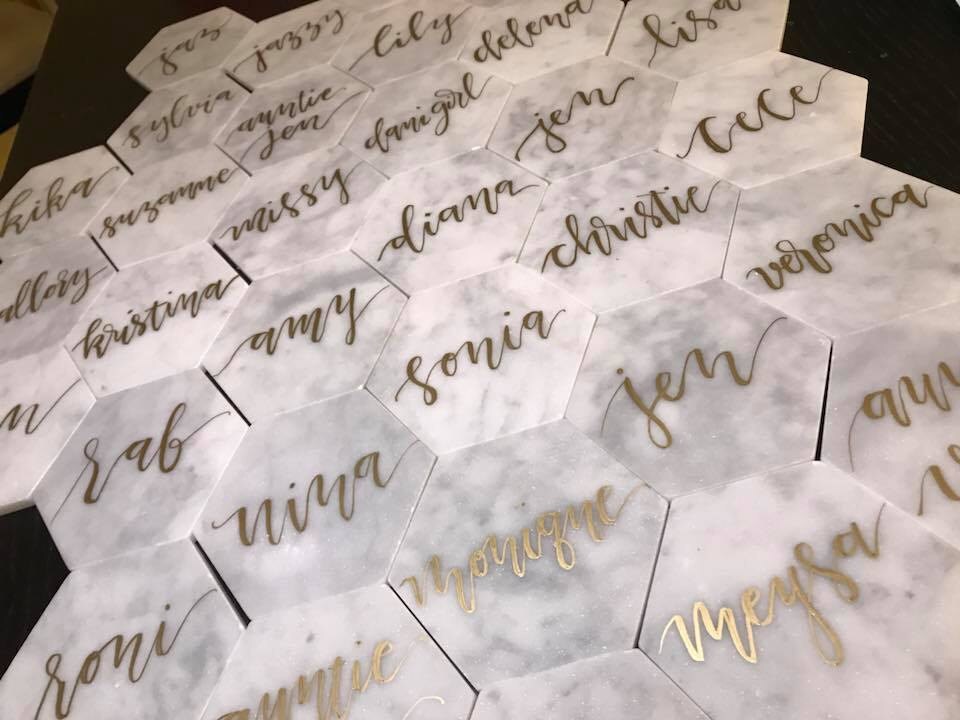 jaz
jazzy
lily
delena
lisa
sylvia
auntie
jen
danigirl
jen
cece
kika
suzanne
missy
diana
christie
veronica
allory
kristina
amy
sonia
jen
rab
nina
monique
meysa
roni
auntie